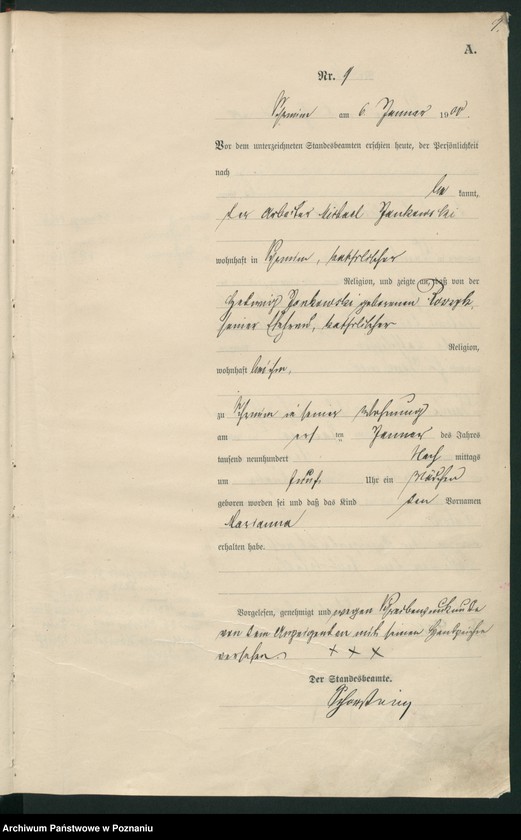 A.
Nr. 1
Schrimm am 6. Januar 1900.
Vor dem unterzeichneten Standesbeamten erschien heute, der Persönlichkeit
nach
be kannt,
der Arbeiter Michael Jankowski
wohnhaft in Schrimm, katholischer
Religion, und zeigte an, daß von der
Hedwig Jankowski geborenen
seiner Ehefrau, katholischer
Religion,
wohnhaft bei ihm,
zu Schrimm in seiner Wohnung
am ersten Januar des Jahres
tausend neunhundert Nach mittags
um fünf Uhr ein Mädchen
geboren worden sei und daß das Kind den Vornamen
Marianna
erhalten habe.
Vorgelesen, genehmigt und wegen Schreibensunkunde
von dem Anzeigenden mit seinen Handzeichen
versehen. + + +
Der Standesbeamte.
Archiwum Państwowe w Poznaniu